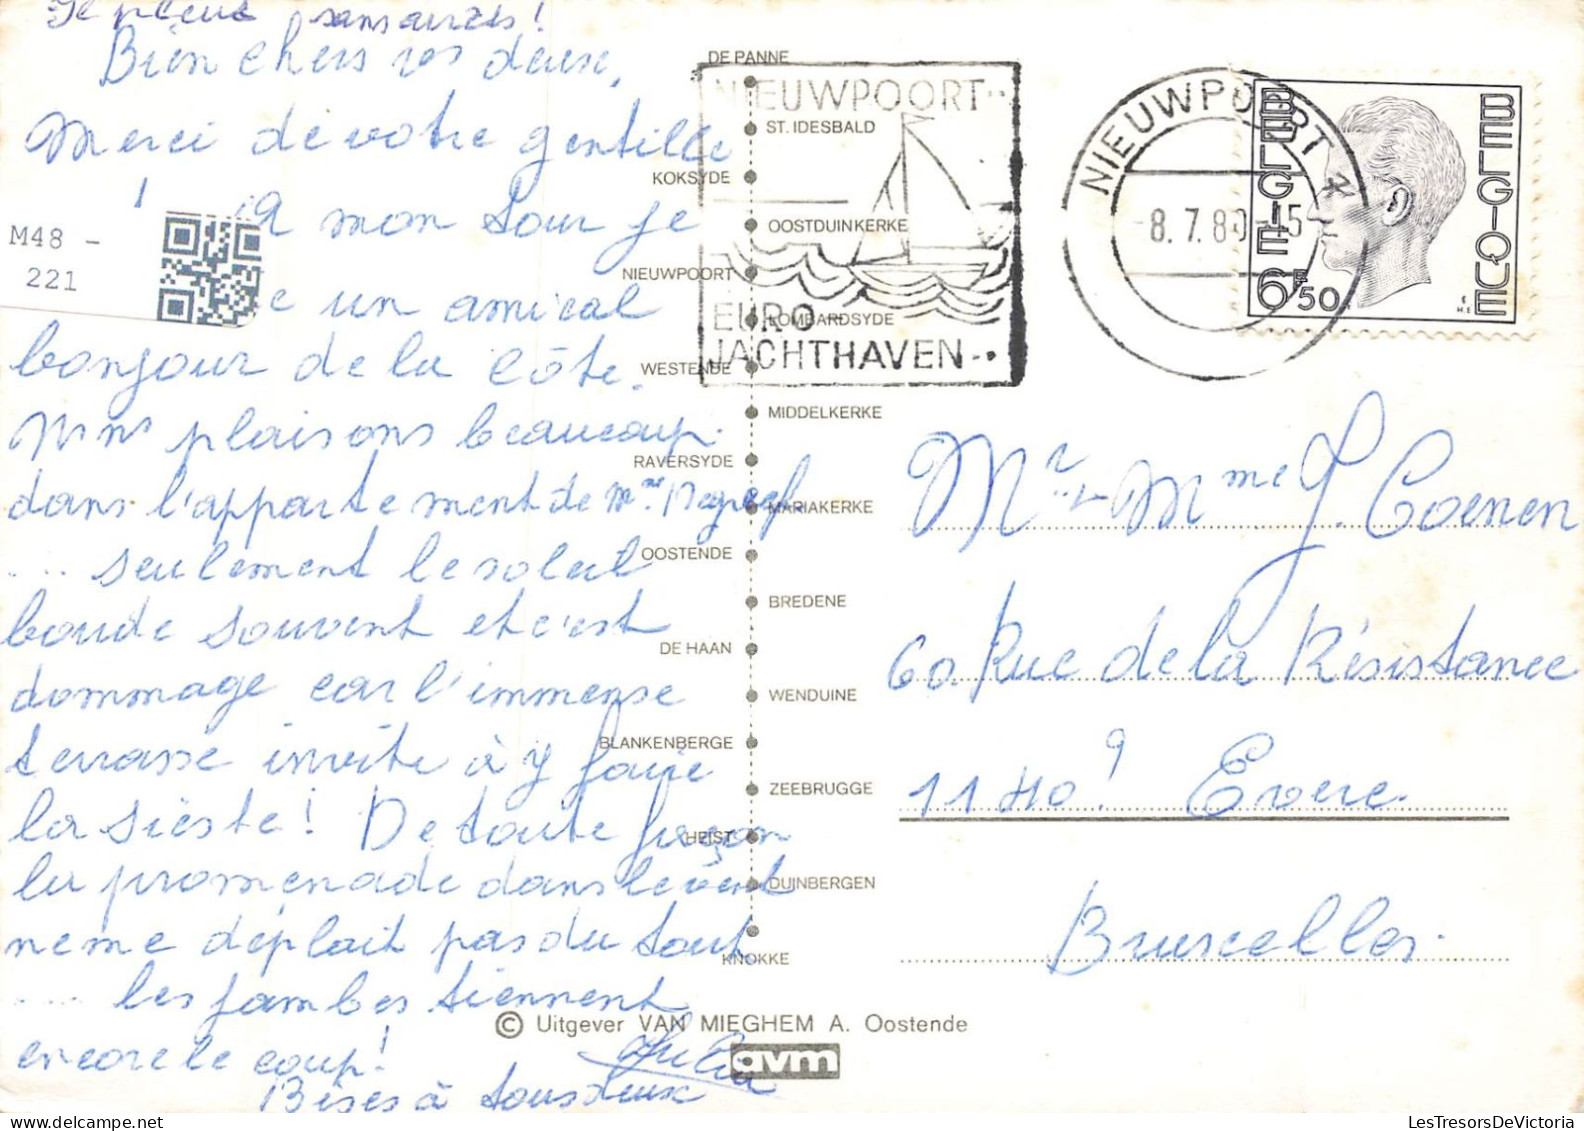 Il pleut sans arrêt!
Bien chers vos deux,
Merci de votre gentille
! A mon tour je
un amical
bonjour de la côte.
Ns ns plaisons beaucoup
dans l'appartement de Mme
... seulement le soleil
boude souvent et c'est
dommage car l'immense
terrasse invite à y faire
la sieste! De toute façon
la promenade dans le vent
ne me déplait pas du tout
... les jambes tiennent
encore le coup!
Bises à tous deux
Julia
M48 -
221
DE PANNE
ST. IDESBALD
KOKSYDE
OOSTDUINKERKE
NIEUWPOORT
LOMBARDSYDE
WESTENDE
MIDDELKERKE
RAVERSYDE
MARIAKERKE
OOSTENDE
BREDENE
DE HAAN
WENDUINE
BLANKENBERGE
ZEEBRUGGE
HEIST
DUINBERGEN
KNOKKE
© Uitgever VAN MIEGHEM A. Oostende
avm
NIEUWPOORT
EURO
JACHTHAVEN
NIEUWPOORT 1
-8.7.80-15
BELGIE
BELGIQUE
6F50
Mr & Mme J. Coenen
60 Rue de la Résistance
1140 Evere
Bruxelles
LesTresorsDeVictoria.com